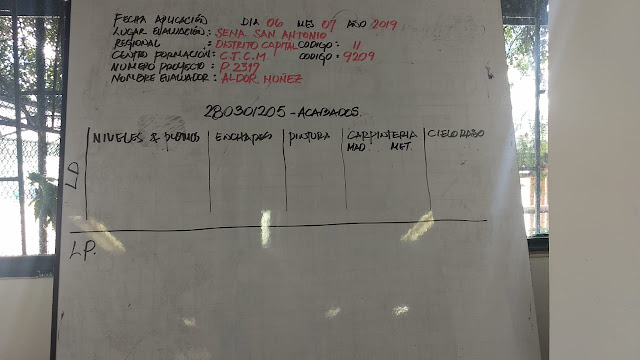 FECHA APLICACIÓN DIA 06 MES 07 AÑO 2019
LUGAR EVALUACIÓN: SENA. SAN ANTONIO
REGIONAL : DISTRITO CAPITAL CODIGO: 11
CENTRO FORMACIÓN: C.T.C.M CODIGO: 9209
NUMERO PROYECTO: P. 2317
NOMBRE EVALUADOR: ALDOR. NUÑEZ
280301205 - ACABADOS.
NIVELES & PLOMOS ENCHAPES PINTURA CARPINTERIA CIELO RASO
MAD. MET.
LD
LP.